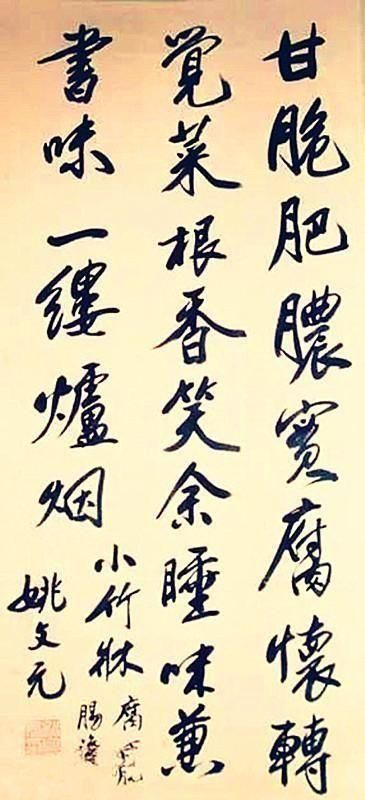 甘脆肥膿實腐懷轉
覺菜根香笑余睡味兼
書味一縷爐烟
小竹牀
腐
腸
姚文元